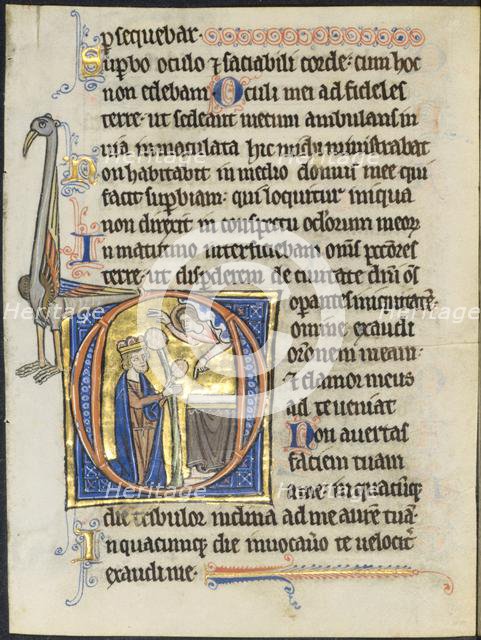 psequebar.
Supbo oculo ⁊ saciabili corde: cum hoc
non edebam Oculi mei ad fideles
terre: ut sedeant mecum ambulans in
uia inmaculata hic michi ministrabat
Non habitabit in medio domus mee qui
facit supbiam: qui loquitur iniqua
non direxit in conspectu oclorum meor
In matutino interficiebam oms pctores
terre: ut disperderem de ciuitate dni os
opantes iniquitate
Domine exaudi
orōnem meam:
⁊ clamor meus
ad te ueniat
Non auertas
faciem tuam
a me: in quacūqz
die tribulor inclina ad me aurem tuā
In quacumque die inuocauero te uelocit
exaudi me.
Heritage
Heritage
Heritage
Heritage
Heritage
Heritage
Heritage